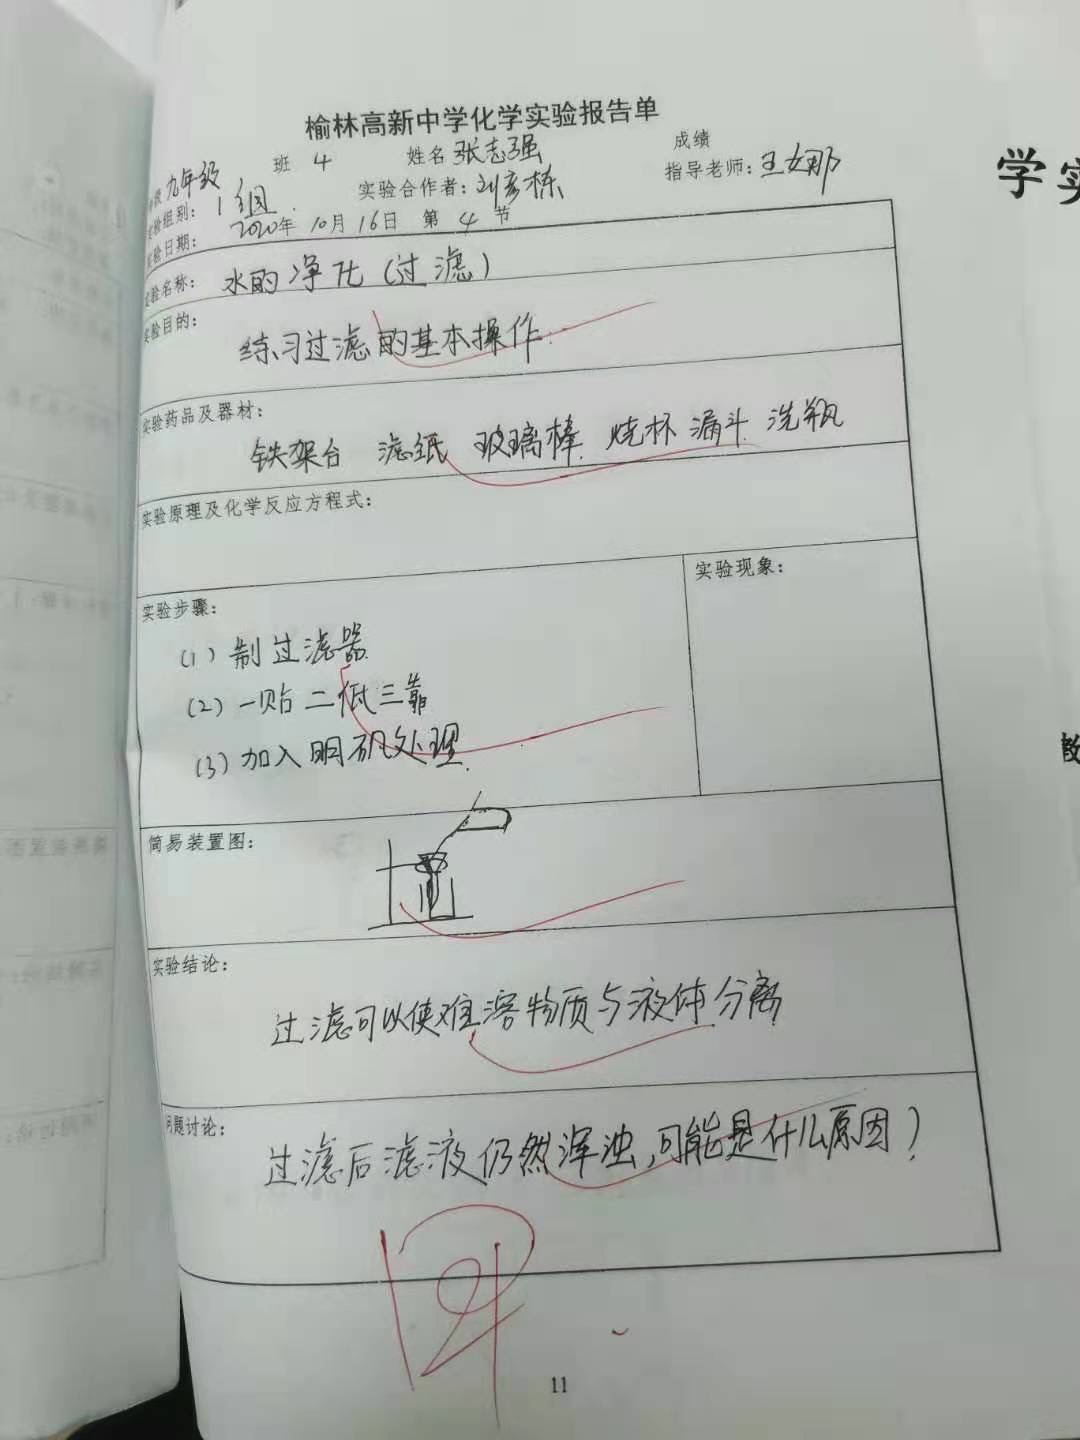 榆林高新中学化学实验报告单
级 九年级 班 4 姓名 张志强 成绩
验组别： 1组 实验合作者：刘彦栋 指导老师：王娜
验日期： 2020年 10月 16日 第 4 节
验名称： 水的净化（过滤）
实验目的：
练习过滤的基本操作.
实验药品及器材：
铁架台 滤纸 玻璃棒 烧杯 漏斗 洗瓶
实验原理及化学反应方程式：
实验步骤：
(1) 制过滤器
(2) 一贴二低三靠
(3) 加入明矾处理.
实验现象：
简易装置图：
实验结论：
过滤可以使难溶物质与液体分离
问题讨论：
过滤后滤液仍然浑浊，可能是什么原因？
11
学实